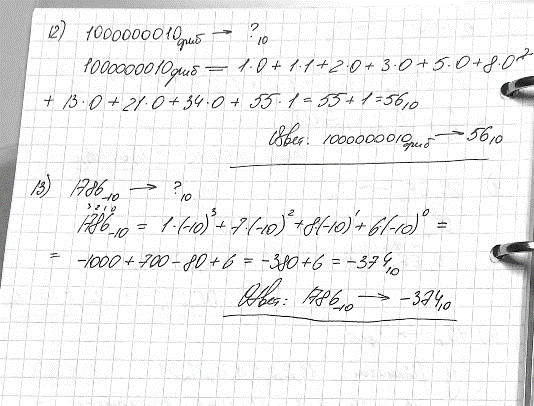 12) 1000000010фиб → ?10
1000000010фиб = 1·0 + 1·1 + 2·0 + 3·0 + 5·0 + 8·0 +
+ 13·0 + 21·0 + 34·0 + 55·1 = 55 + 1 = 5610
Ответ: 1000000010фиб → 5610
13) 1786-10 → ?10
3 2 1 0
1786-10 = 1·(-10)³ + 7·(-10)² + 8(-10)¹ + 6(-10)⁰ =
= -1000 + 700 - 80 + 6 = -380 + 6 = -37410
Ответ: 1786-10 → -37410